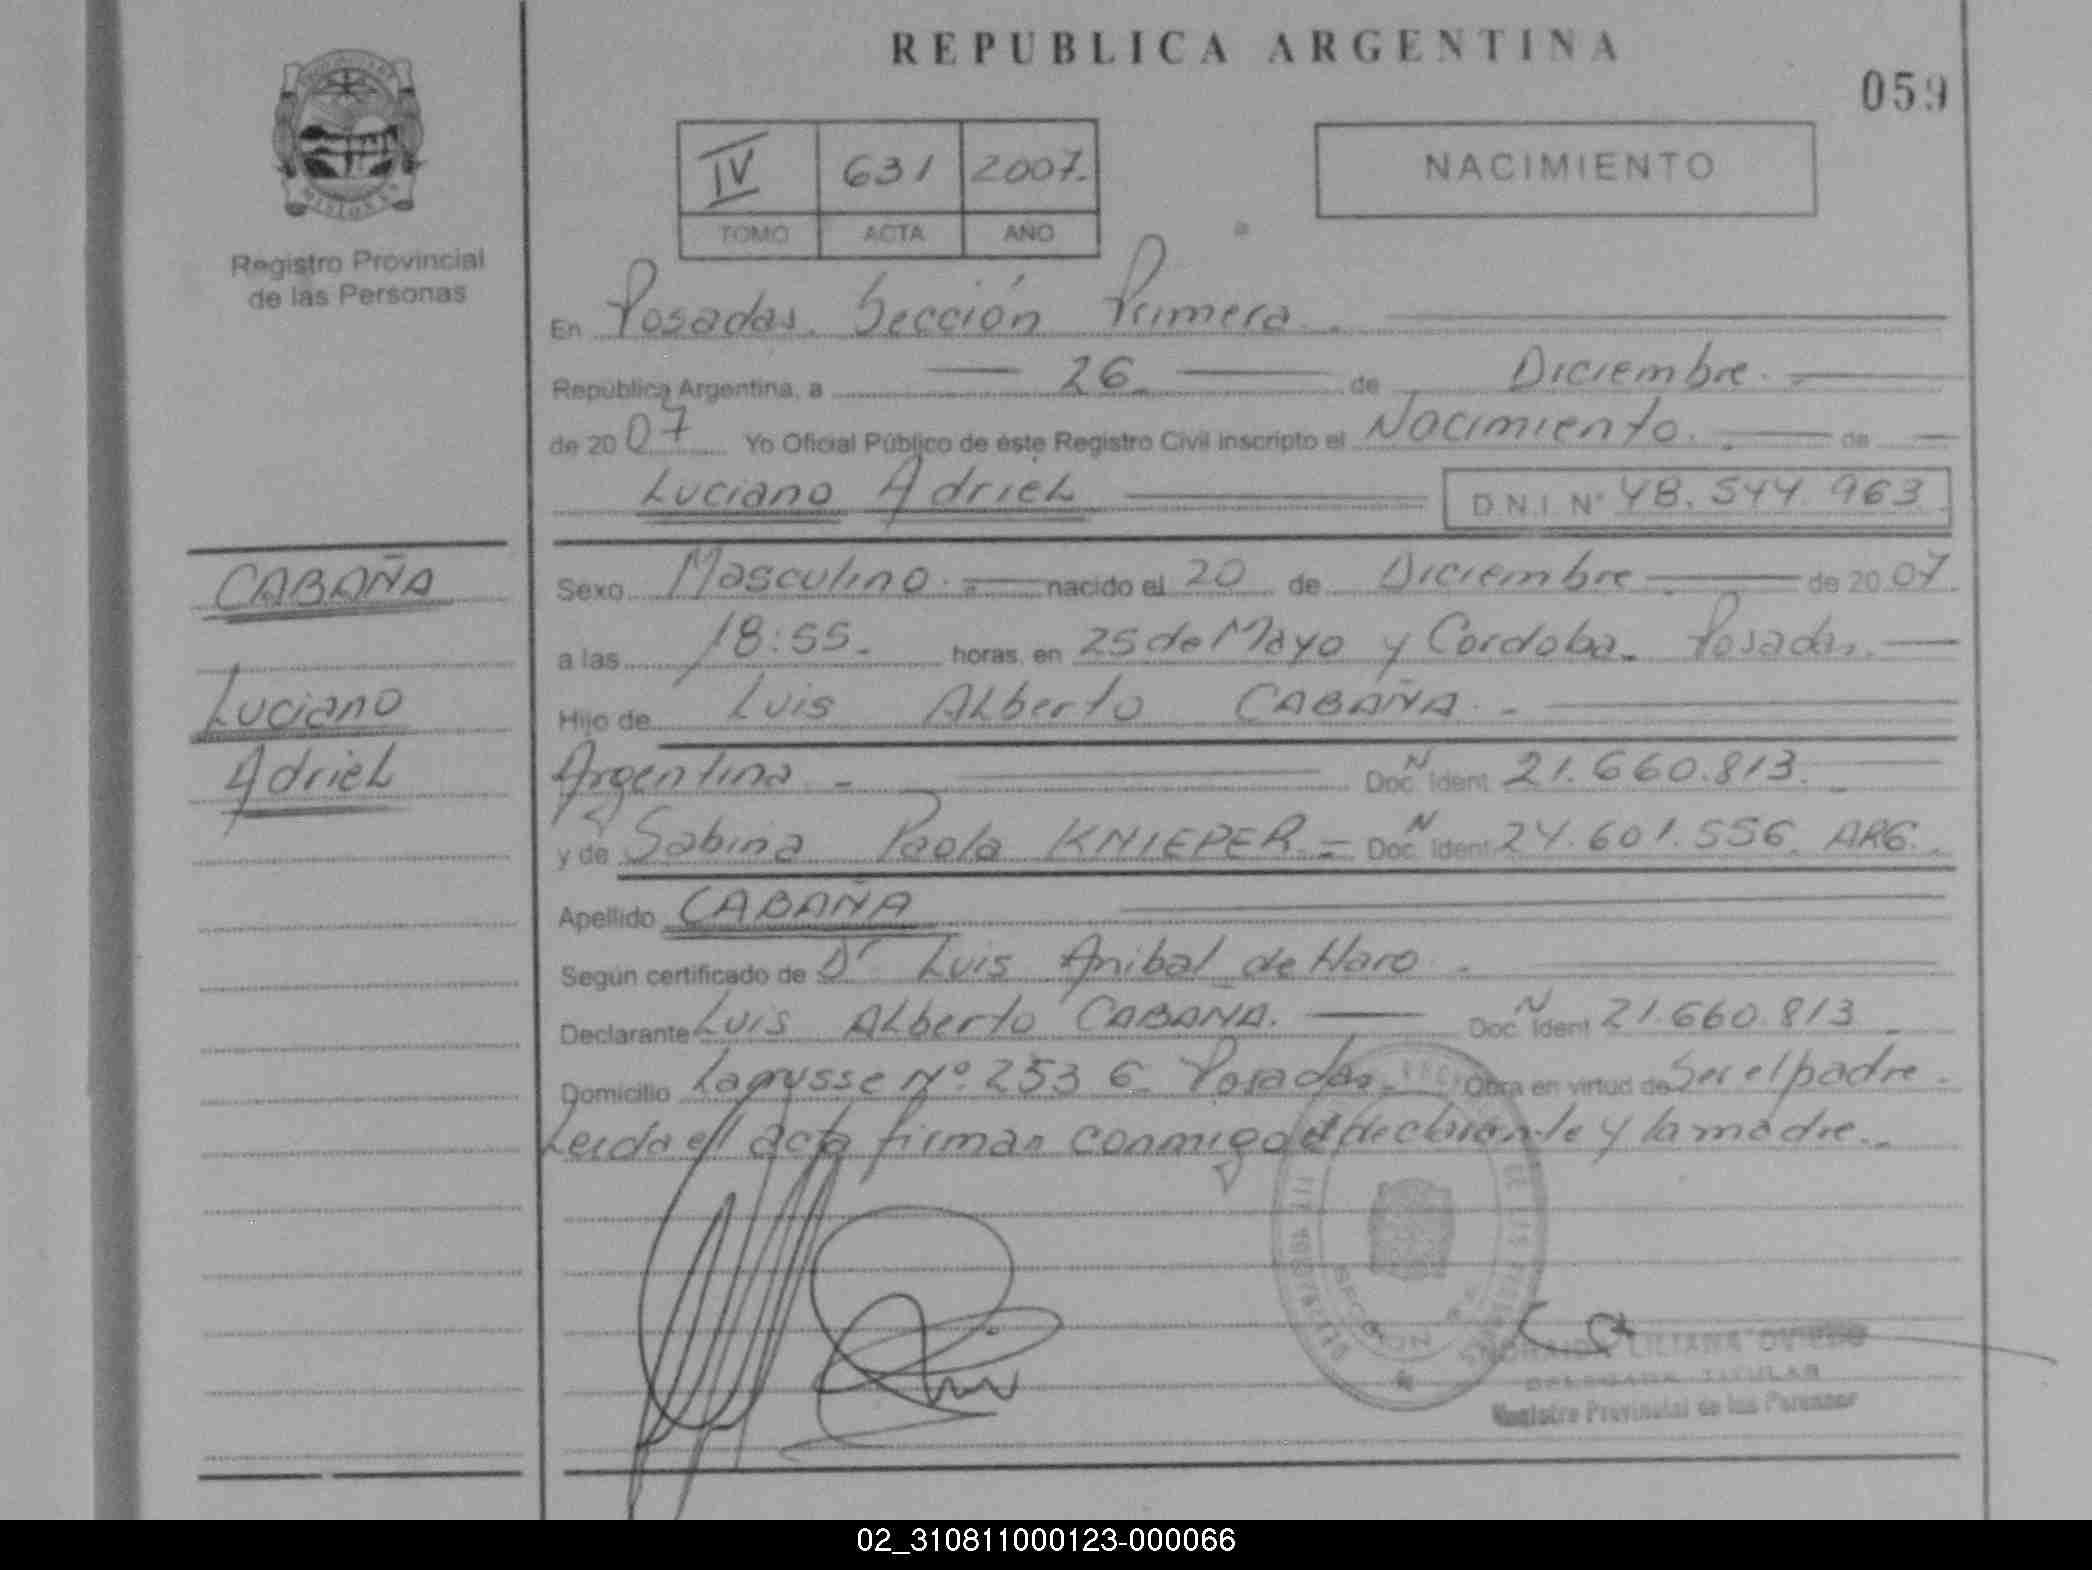 REPUBLICA ARGENTINA
059
IV 631 2007.
TOMO ACTA AÑO
NACIMIENTO
Registro Provincial
de las Personas
En Posadas. Sección Primera.
República Argentina, a 26 de Diciembre.
de 2007 Yo Oficial Público de éste Registro Civil inscripto el Nacimiento. de
Luciano Adriel D.N.I. Nº 48.544.963
CABAÑA
Luciano
Adriel
Sexo Masculino. nacido el 20 de Diciembre de 2007
a las 18:55. horas, en 25 de Mayo y Cordoba. Posadas.
Hijo de Luis Alberto CABAÑA.
Argentina Doc. N Ident 21.660.813.
y de Sabina Paola KNIEPER. Doc. N Ident 24.601.556. ARG.
Apellido CABAÑA
Según certificado de Dr Luis Anibal de Haro.
Declarante Luis Alberto CABAÑA. Doc. N Ident 21.660.813
Domicilio Nº 2536 Posadas. Obra en virtud de Ser el padre.
Leida el acta firman conmigo el declarante y la madre.
LILIANA OVIEDO
DELEGADA TITULAR
Registro Provincial de las Personas
02_310811000123-000066